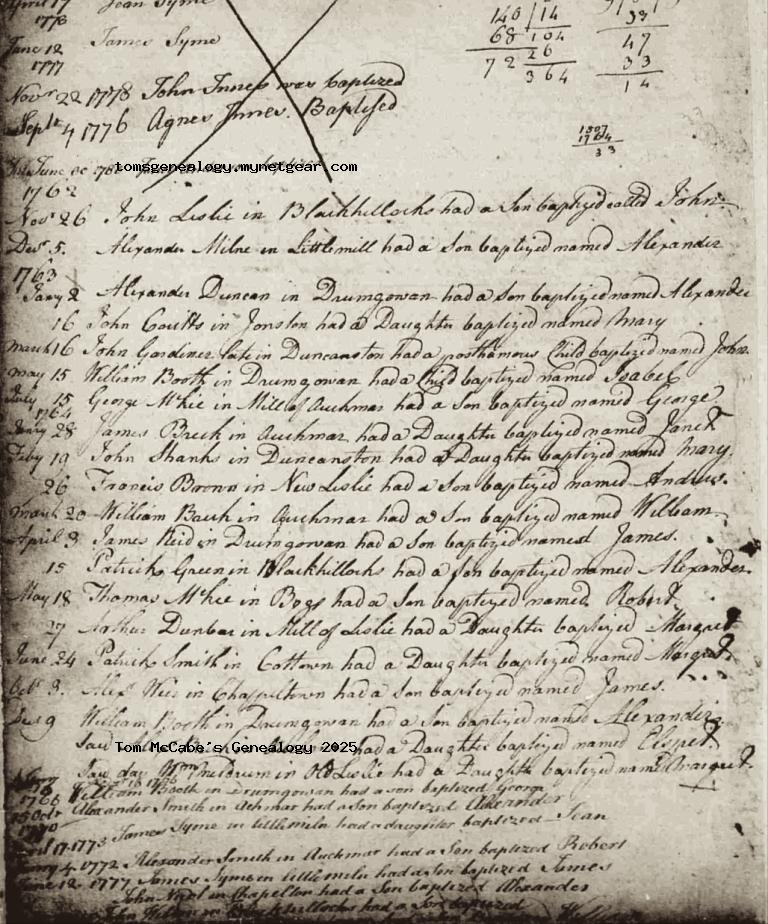 April 17 Jean Syme
1773
June 12 James Syme
1777
Novr 22 1778 John Innes was baptized
Septr 4 1776 Agnes Innes. Baptised
140 14
68 104
72 26
364
33
47
33
14
1807
1764
33
tomsgenealogy.mynetgear.com
1762
Novr 26 John Leslie in Blackhillocks had a Son baptized called John.
Decr 5. Alexander Milne in Littlemill had a Son baptized named Alexander
1763
Janry 2 Alexander Duncan in Drumgowan had a Son baptized named Alexander
16 John Coutts in Jonston had a Daughter baptized named Mary
March 16 John Gardiner late in Duncanston had a posthumous Child baptized named John.
May 15 William Booth in Drumgowan had a Child baptized named Isabel
July 15 George McKie in Mill of Auchmar had a Son baptized named George.
1764
Janry 28 James Brech in Auchmar had a Daughter baptized named Janet
Febry 19 John Shanks in Duncanston had a Daughter baptized named Mary.
26 Francis Brown in New Leslie had a Son baptized named Andrew.
March 20 William Bauk in Auchmar had a Son baptized named William
April 3. James Reid in Drumgowan had a Son baptized named James.
15 Patrick Green in Blackhillocks had a Son baptized named Alexander.
May 18 Thomas McKie in Bogs had a Son baptized named Robert
27 Arthur Dunbar in Mill of Leslie had a Daughter baptized Margret
June 24 Patrick Smith in Cottown had a Daughter baptized named Margret
Octr 3. Alexr Weir in Chappeltown had a Son baptized named James.
9 William Booth in Drumgowan had a Son baptized named Alexander.
Tom McCabe's Genealogy 2025 had a Daughter baptized named Elspet
Said day Wm Meldrum in Old Leslie had a Daughter baptized named Margret.
1766 William Booth in Drumgowan had a son baptized George
15 Octr Alexander Smith in Achmar had a Son baptized Alexander
1770
April 17 1773 James Syme in Littlemiln had a daughter baptized Jean
4 1772 Alexander Smith in Auchmar had a Son baptized Robert
June 12 1777 James Syme in Littlemiln had a Son baptized James
John in Chapelton had a Son baptized Alexander
John in Blackhillocks had a Son baptized